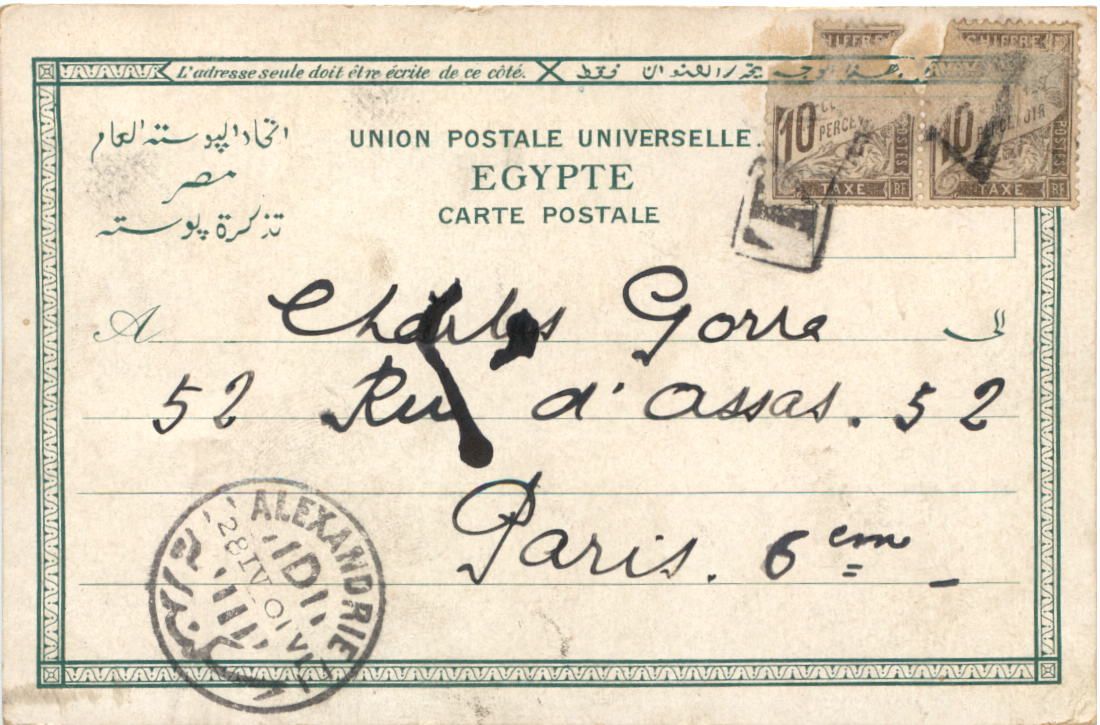 L'adresse seule doit être écrite de ce côté.
اتحاد البوسته العام
مصر
تذكرة بوسته
UNION POSTALE UNIVERSELLE.
EGYPTE
CARTE POSTALE
CHIFFRE
10
PERCEVOIR
POSTES
TAXE RF
CHIFFRE
10
PERCEVOIR
POSTES
TAXE RF
T
A Charles Gorra الى
52 Rue d'assas. 52
Paris. 6 eme
ALEXANDRIE
28 IV 01